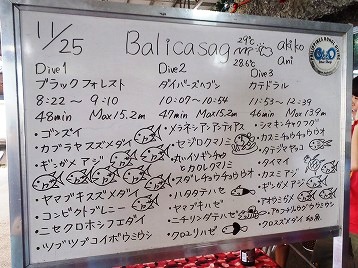 11/25
Balicasag
29℃
28.6℃
akiko
ani
Dive1
ブラックフォレスト
8:22 〜 9:10
48min Max15.2m
・ゴンズイ
・カブラヤスズメダイ
・ギンガメアジ
・ヤマブキスズメダイ
・コンビクトブレニー
・ニセクロホシフエダイ
・ツブツブコイボウミウシ
Dive2
ダイバーズヘブン
10:07〜10:54
47min Max15.2m
・メラネシアンアンティアス
・セジロクマノミ
・カクレクマノミ
・スダレチョウチョウウオ
・ハタタテハゼ
・ヤマブキハゼ
・ニチリンダテハゼ
・クロユリハゼ
Dive3
カテドラル
11:53〜12:39
46min Max13.9m
・シマキンチャクフグ
・カスミチョウチョウウオ
・タイマイ
・カスミアジ
・ギンガメアジ
・アカヒメジ
・クロスズメダイ